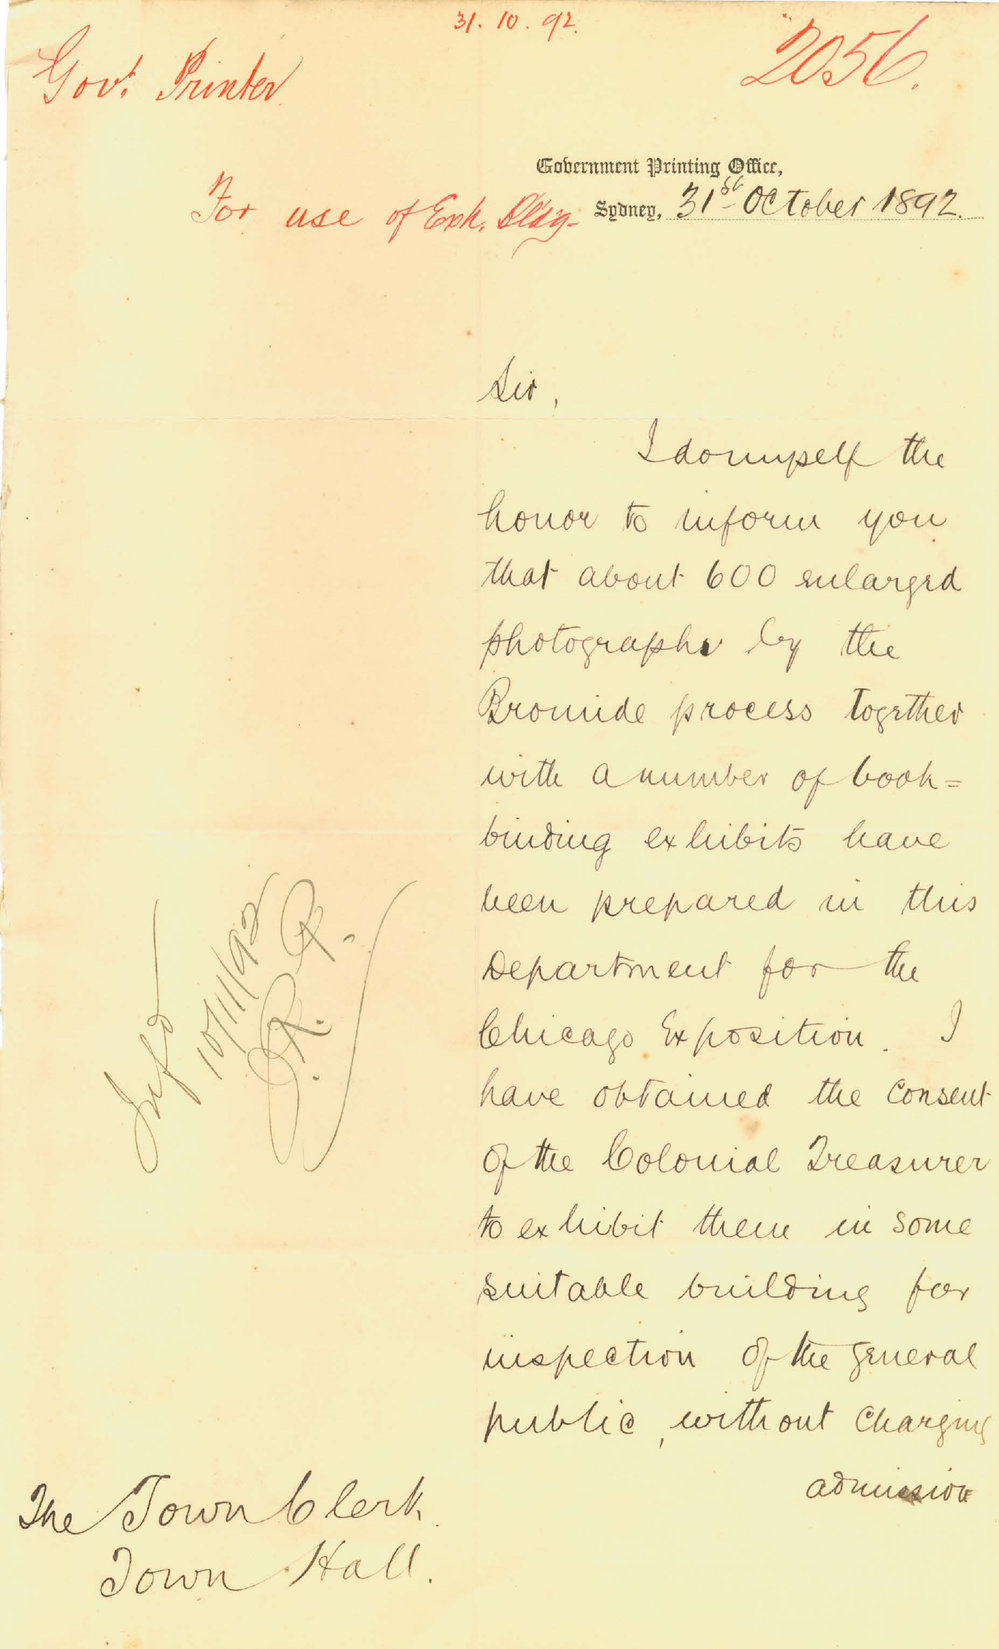 31.10.92.
Govt. Printer
2056.
Government Printing Office,
For use of Exh. Bldg.
Sydney, 31st October 1892.
Sir,
I do myself the
honor to inform you
that about 600 enlarged
photographs by the
Bromide process together
with a number of book=
binding exhibits have
been prepared in this
Department for the
Chicago Exposition. I
have obtained the consent
of the Colonial Treasurer
to exhibit them in some
suitable building for
inspection of the general
public, without charging
admission
Infd
10/11/92
The Town Clerk.
Town Hall.